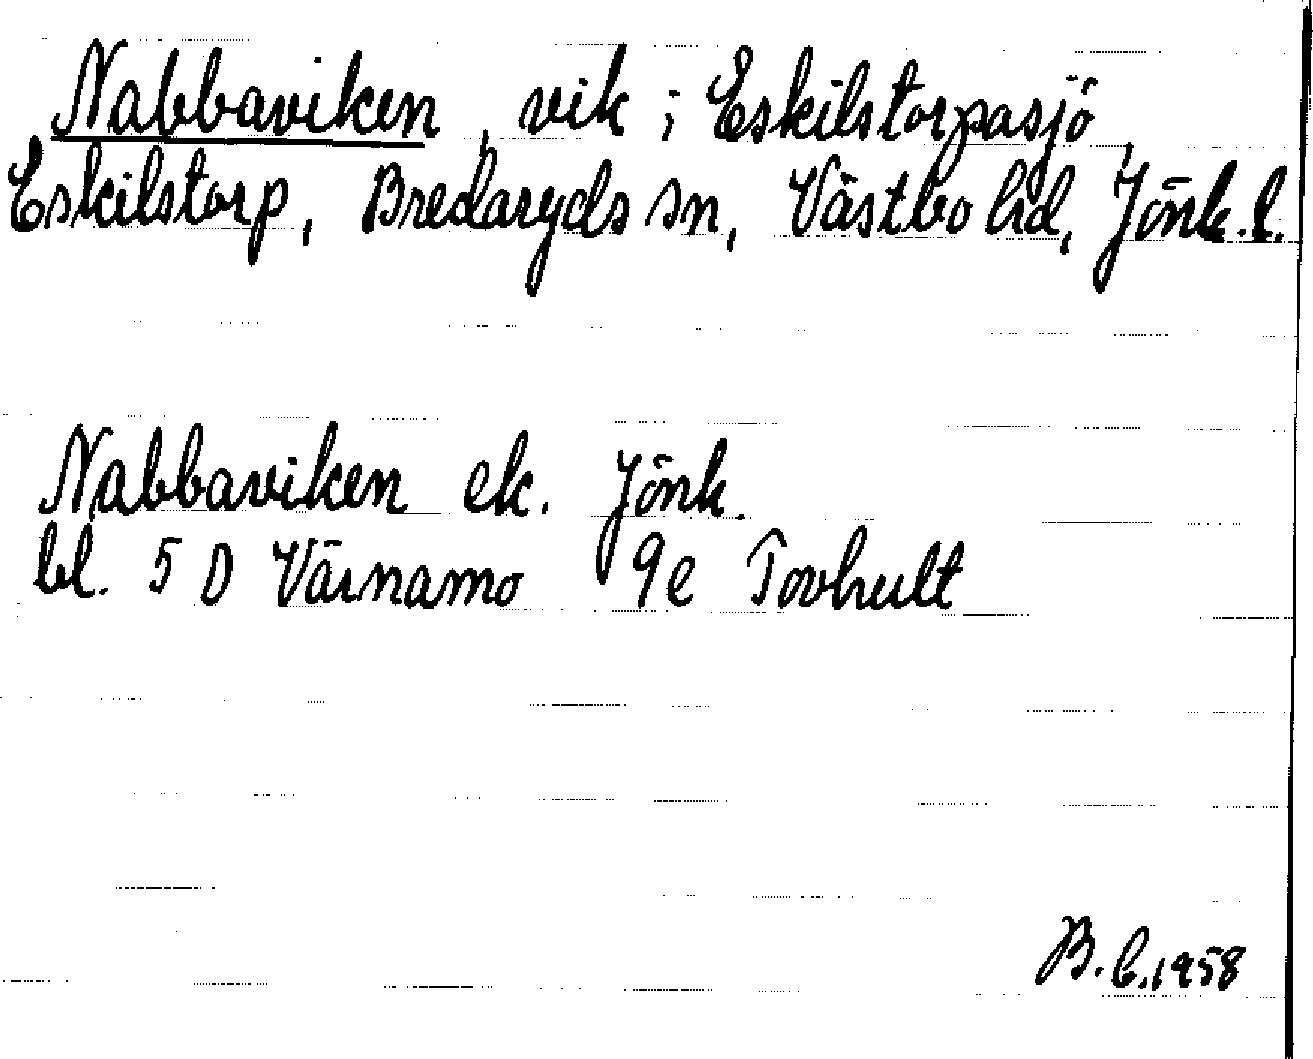 Nabbaviken, vik i Eskilstorpasjö,
Eskilstorp, Bredaryds sn, Västbo hd, Jönk. l.
Nabbaviken ek. Jönk.
bl. 5 D Värnamo 9e Tovhult
B. 1958